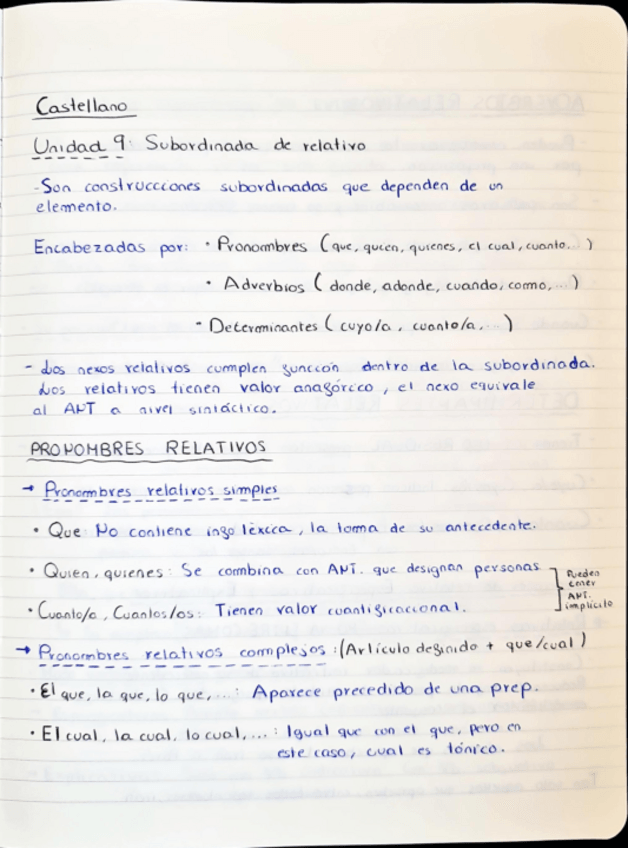 Castellano
Unidad 9: Subordinada de relativo
-Son construcciones subordinadas que dependen de un
elemento.
Encabezadas por: · Pronombres (que, quien, quienes, el cual, cuanto...)
· Adverbios (donde, adonde, cuando, como,...)
· Determinantes (cuyo/a, cuanto/a,...)
- Los nexos relativos cumplen función dentro de la subordinada.
Los relativos tienen valor anafórico, el nexo equivale
al ANT a nivel sintáctico.
PRONOMBRES RELATIVOS
→ Pronombres relativos simples
· Que: No contiene info léxica, la toma de su antecedente.
· Quien, quienes: Se combina con ANT. que designan personas
· Cuanto/a, Cuantos/as: Tienen valor cuantificacional.
Pueden
tener
ANT.
implícito
→ Pronombres relativos complejos: (Artículo definido + que/cual)
· El que, la que, lo que,...: Aparece precedido de una prep.
· El cual, la cual, lo cual,...: Igual que con el que, pero en
este caso, cual es tónico.